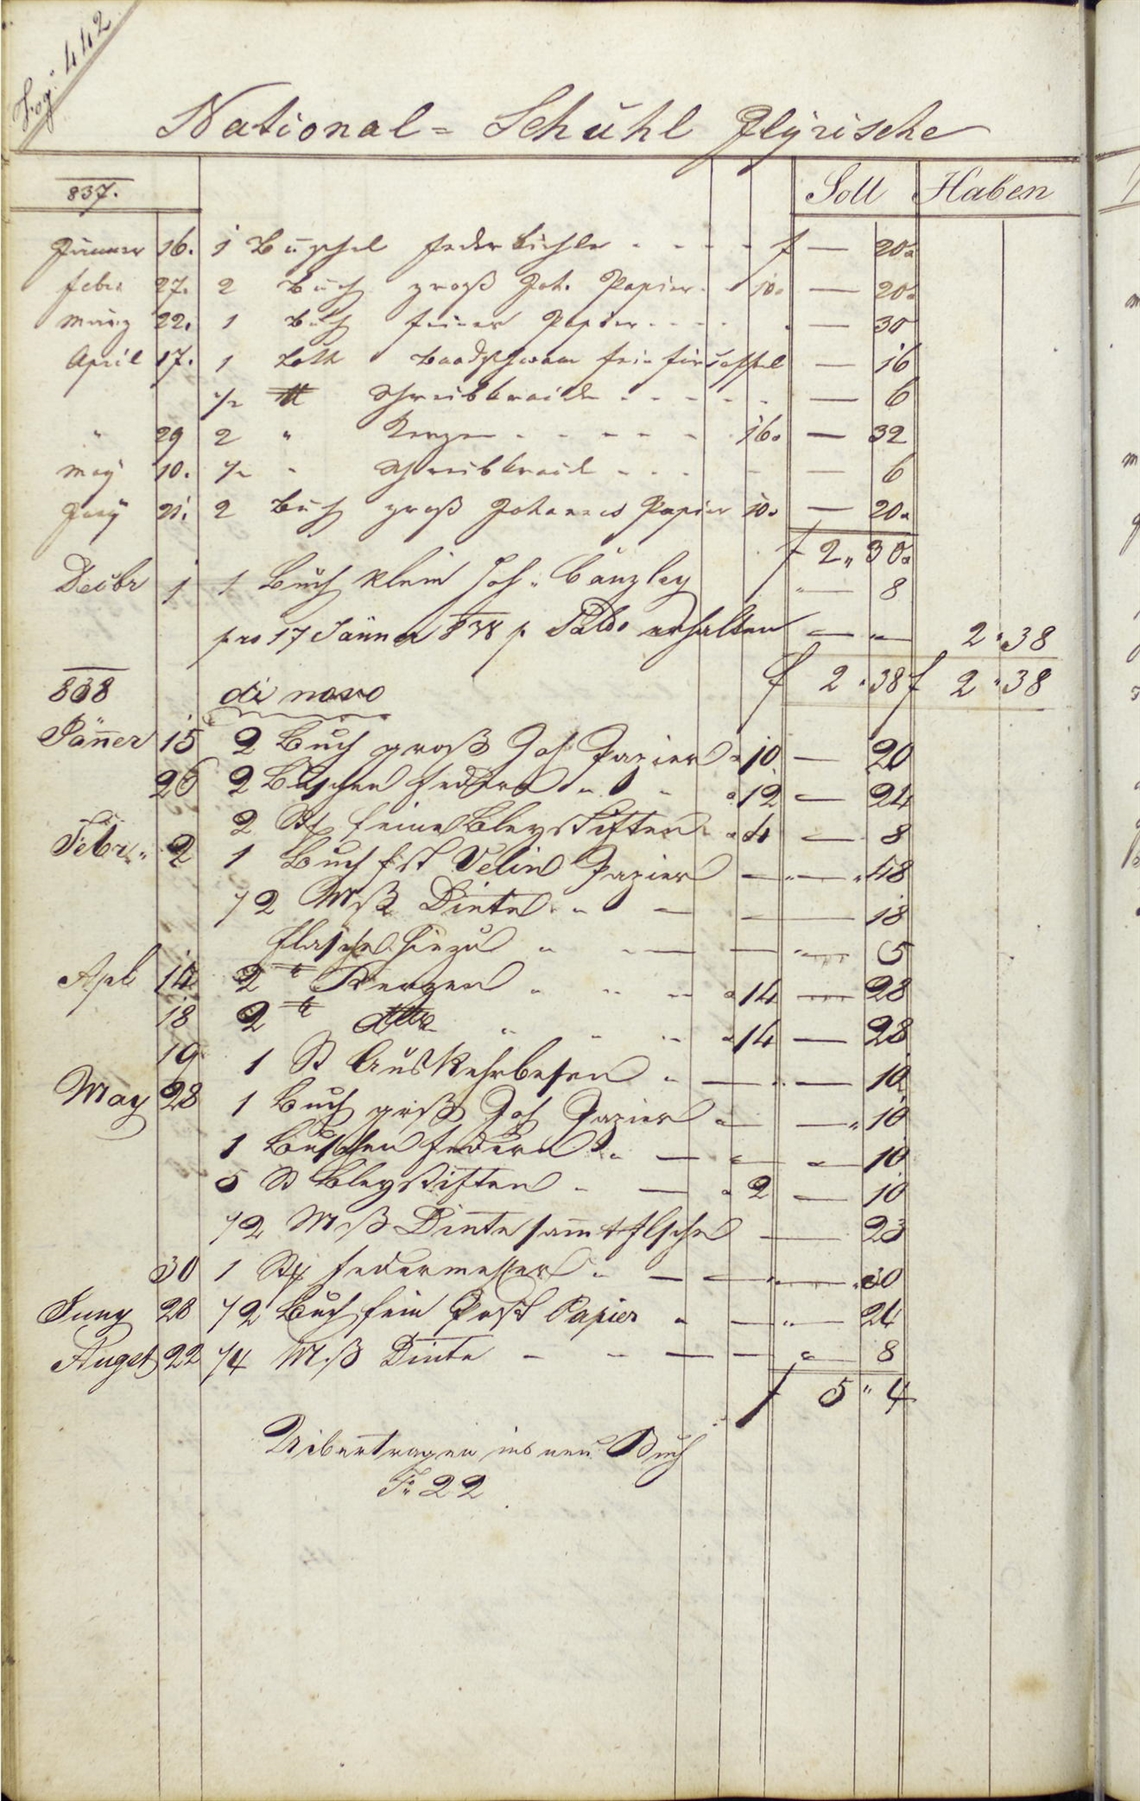 Fog: 442
National= Schuhl Illÿrische
837. Soll Haben
Jänner 16. 1 Büschel Federkiehle - - - - f — 20
Febr 27. 2 Buch groß Joh. Papier - 10 — 20
März 22. 1 Buch feines Papier - - - — 30
April 17. 1 Loth Baadschwam fein für — 16
1/2 ℔ Schreibkreide - - - - — 6
" 29 2 " Kerzen - - - - - 16 — 32
May 10. 1/2 - Schreibkreide - - - — 6
21. 2 Buch groß Johannes Papier 10 — 20
f 2 " 30
Decbr 1 1 Buch klein Joh. Canzley " — 8
pro 17 Jänner 838 p. Saldo erhalten — " — 2 " 38
f 2 " 38 f 2 " 38
838 di novo
Jänner 15 2 Buch groß Joh Papier a 10 — 20
26 2 Büschen Federn " " a 12 — 24
2 St feine Bleystiften " a 4 — 8
Febr. 2 1 Buch Velin Papier — " — " 48
1/2 Mß Dinte " " — — 18
Flasche hiezu " " — — " 5
Apl 14 2 ℔ Kerzen " " " a 14 — 28
18 2 ℔ detto " " " a 14 — 28
19 1 St Auskehrbesen " — " — 10
May 28 1 Buch groß Joh Papier " — " 10
1 Büschen Federn " — " " — 10
5 St Bleystiften " — a 2 — 10
1/2 Mß Dinte samt Flsche — — 23
30 1 Stk Federmesser " — — " — " 30
Juny 28 1/2 Buch fein Post Papier " — " — 24
Augst 22 1/4 Mß Dinte - - — — " — 8
f 5 " 4
Uibertragen ins neue Buch
Fo 22